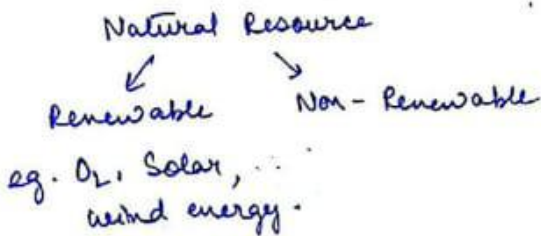 Natural Resource
Renewable Non-Renewable
eg. O₂, Solar, ...
wind energy.